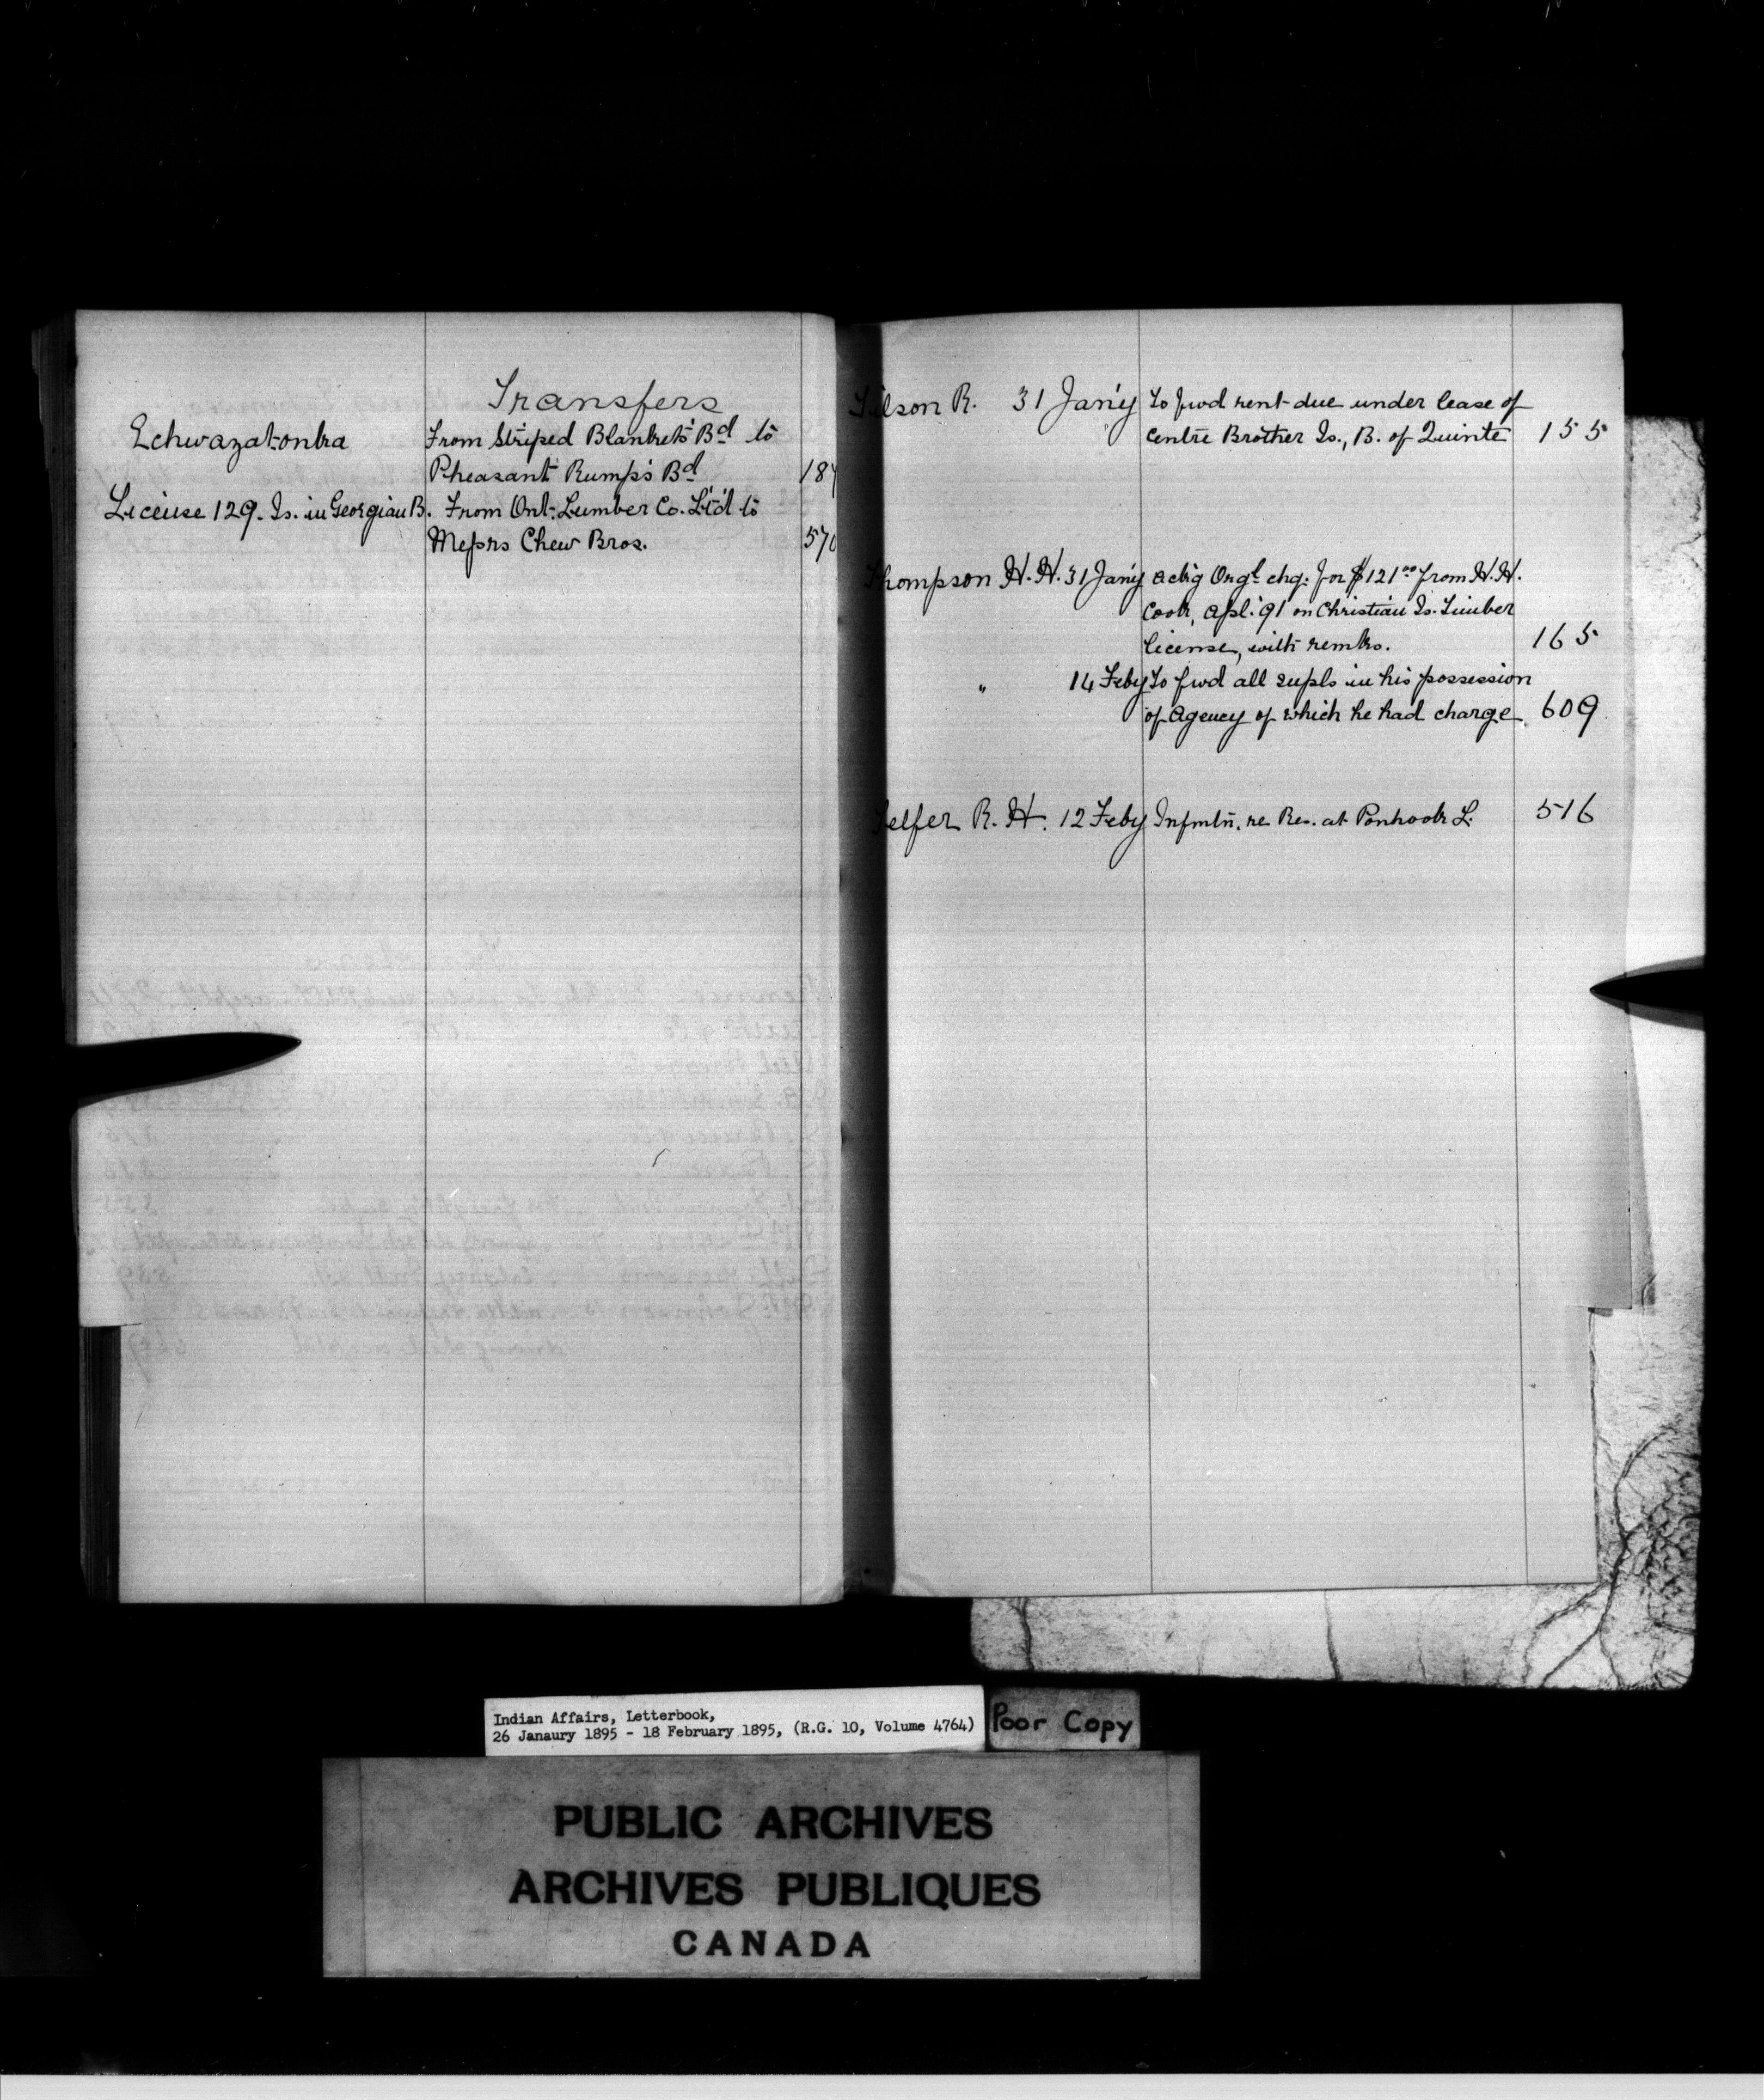 Transfers
Echwazatonka From Striped Blanket's Bd to
Pheasant Rump's Bd 187
License 129. Is. in Georgian B. From Ont. Lumber Co. L't'd to
Messrs Chew Bros. 570
Tilson R. 31 Jan'y To fwd rent due under lease of
Centre Brother Is., B. of Quinte 155
Thompson H. H. 31 Jan'y ack'g Orgl chq. for $121.00 from H. H.
Cook, apl. '91 on Christian Is. Timber
license, with remks. 165
" 14 Feby To fwd all supls in his possession
of Agency of which he had charge 609
Telfer R. H. 12 Feby Infmtn. re Res. at Ponhook L. 516
Indian Affairs, Letterbook,
26 Janaury 1895 - 18 February 1895, (R.G. 10, Volume 4764)
Poor Copy
PUBLIC ARCHIVES
ARCHIVES PUBLIQUES
CANADA